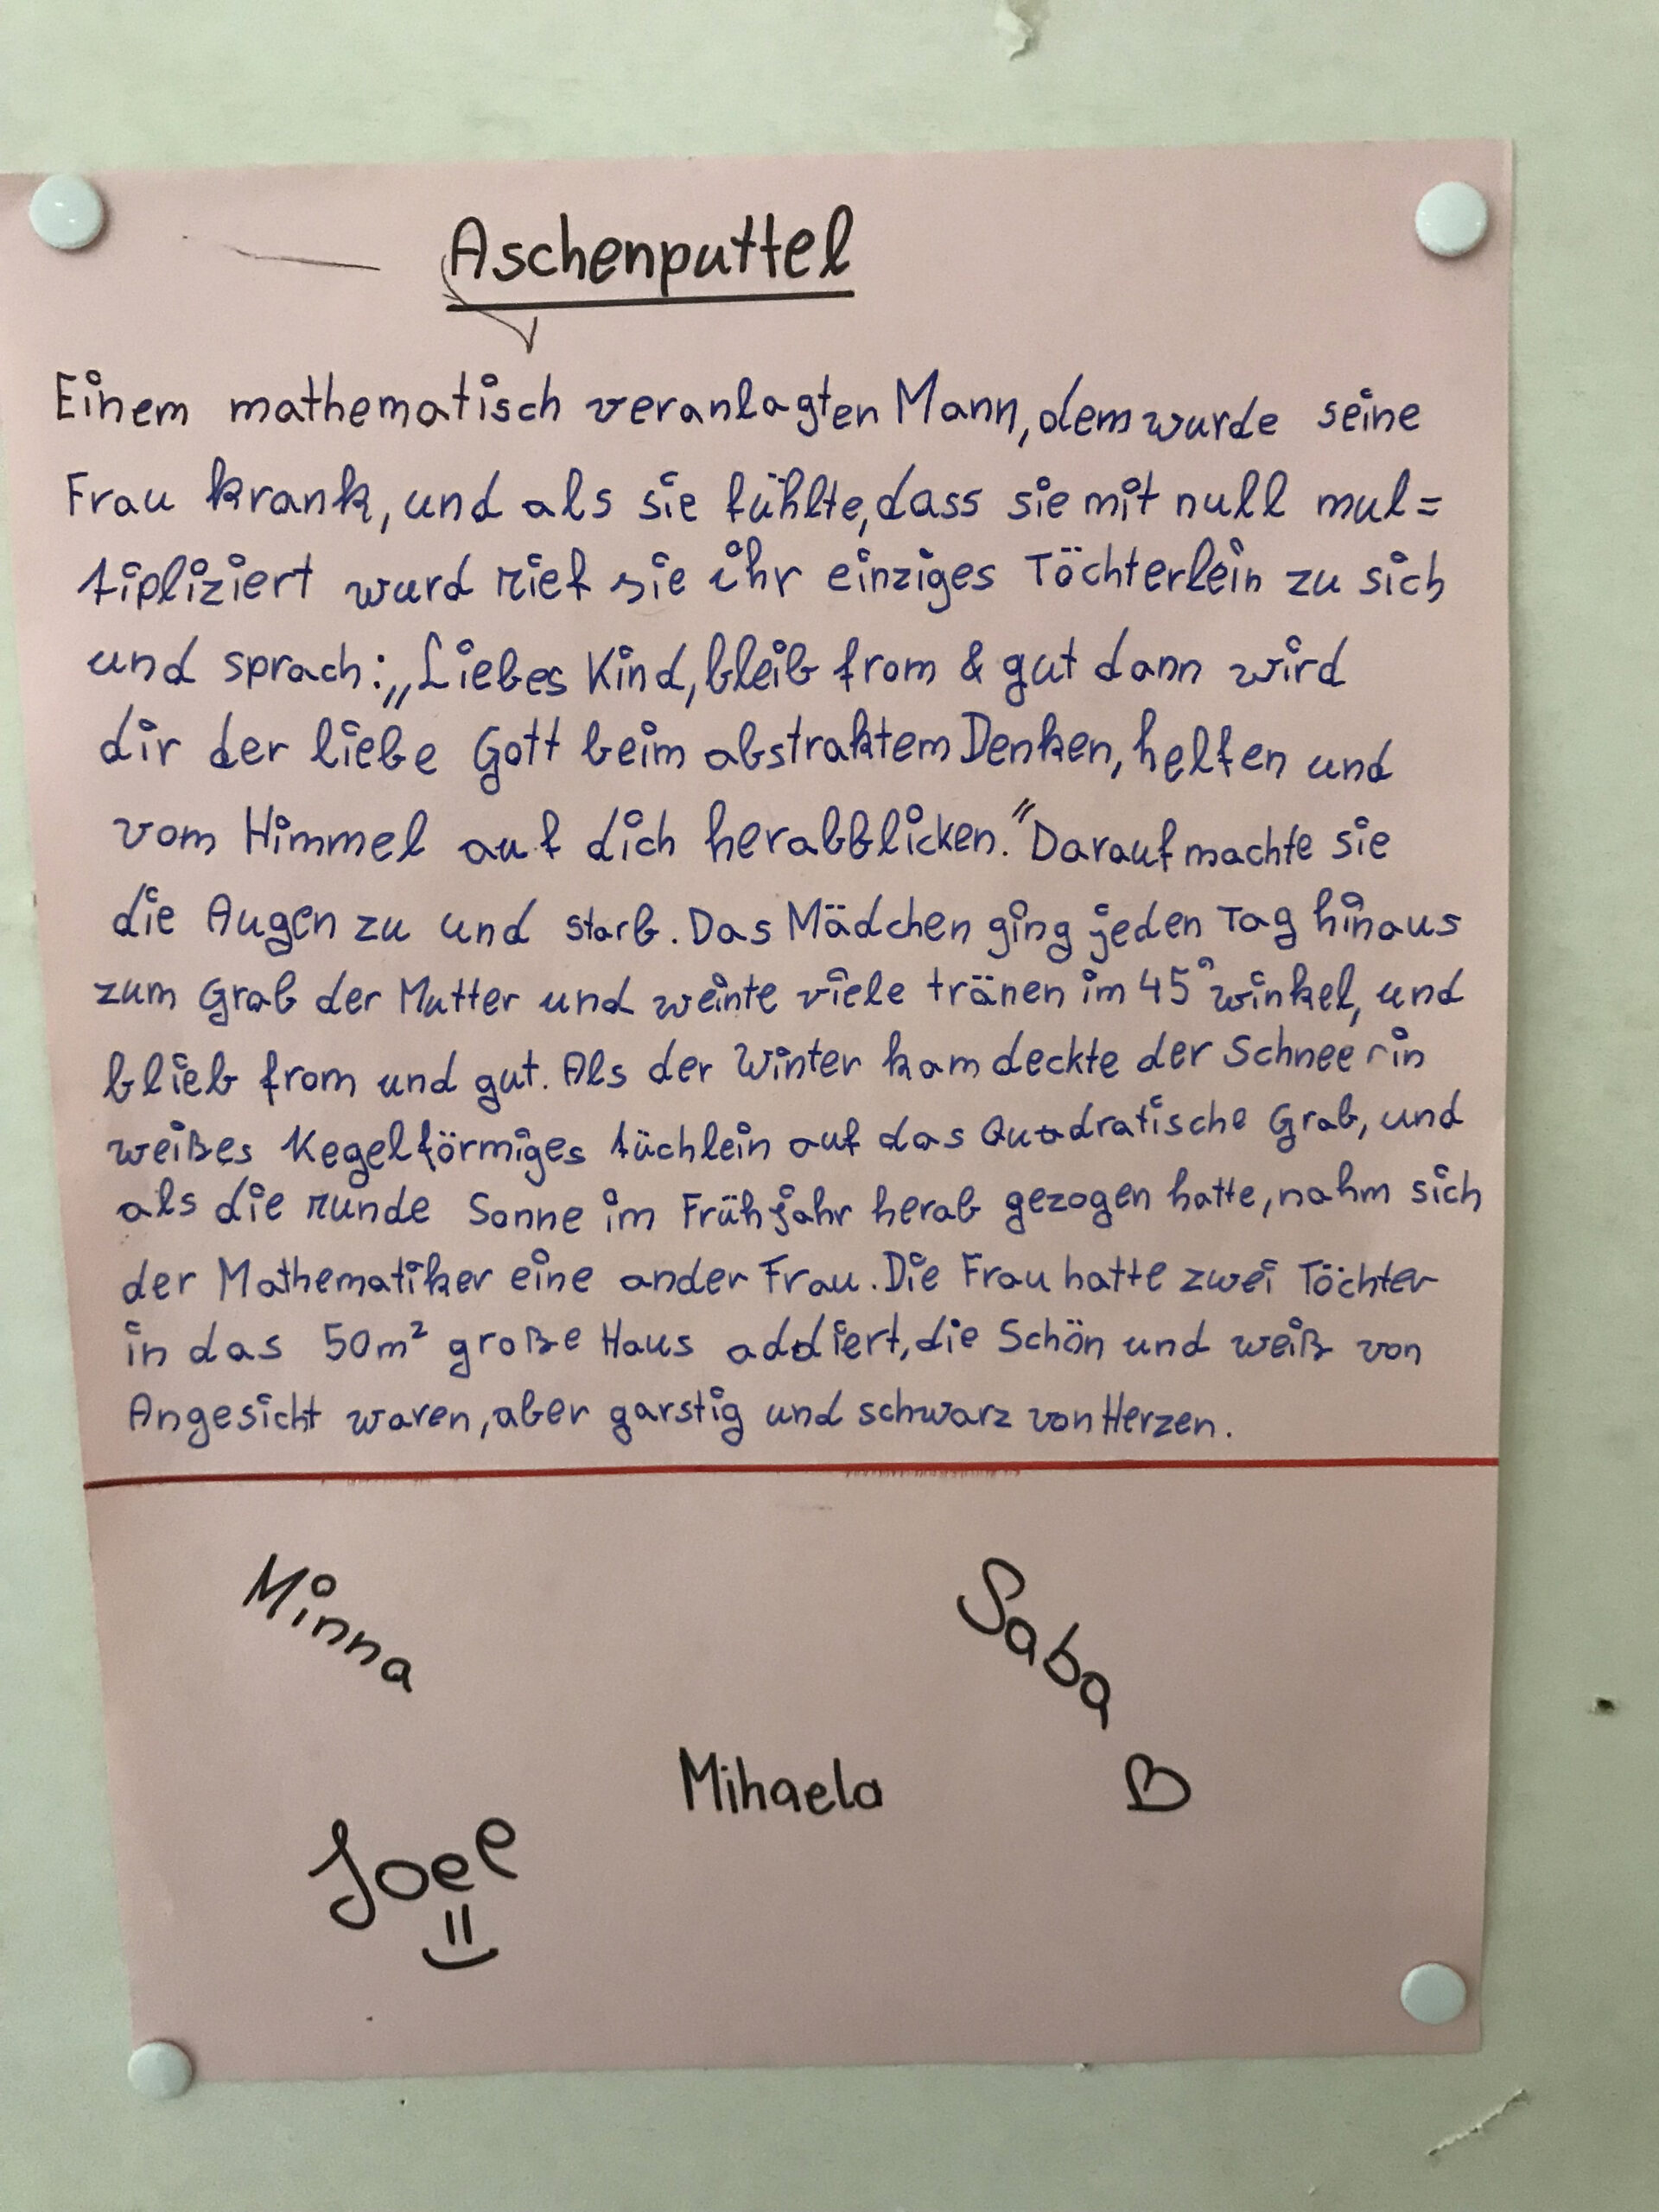 Aschenputtel
Einem mathematisch veranlagten Mann, dem wurde seine
Frau krank, und als sie fühlte, dass sie mit null mul=
tipliziert wurd rief sie ihr einziges Töchterlein zu sich
und sprach: „Liebes Kind, bleib from & gut dann wird
dir der liebe Gott beim abstraktem Denken, helfen und
vom Himmel auf dich herabblicken." Darauf machte sie
die Augen zu und starb. Das Mädchen ging jeden Tag hinaus
zum Grab der Mutter und weinte viele tränen im 45° winkel, und
blieb from und gut. Als der Winter kam deckte der Schnee
weißes Kegelförmiges tüchlein auf das Quadratische Grab, und
als die runde Sonne im Frühjahr herab gezogen hatte, nahm sich
der Mathematiker eine ander Frau. Die Frau hatte zwei Töchter
in das 50m² große Haus addiert, die Schön und weiß von
Angesicht waren, aber garstig und schwarz von Herzen.
Minna
Saba
Mihaela
Joel